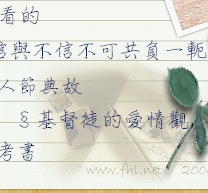 看的
信與不信不可共負一軛
人節典故
§基督徒的愛情觀
考書
www.fhl.net 200